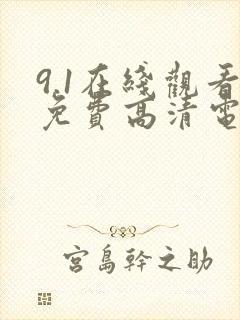 9.1在綫觀看
免費高清電
宮島幹之助